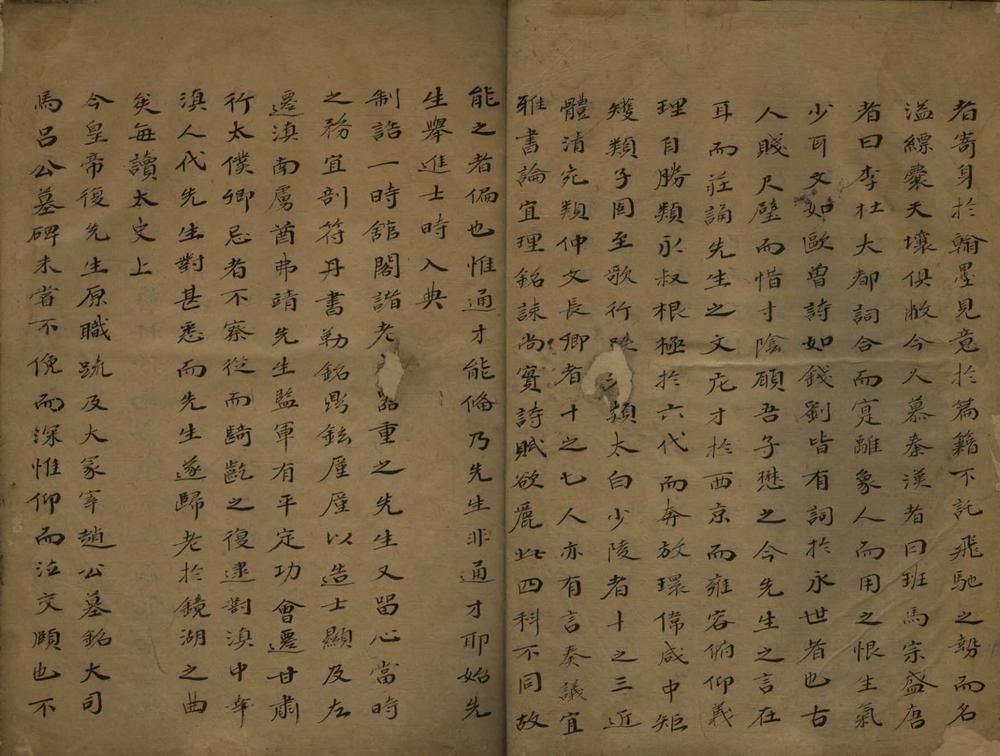 者寄身於翰墨見意於篇籍不託飛馳之勢而名
溢縹囊天壤俱敝今人慕秦漢者曰班馬宗盛唐
者曰李杜大都詞合而寔離象人而用之恨生氣
少耳文如歐曾詩如錢劉皆有詞於永世者也古
人賤尺璧而惜寸陰顧吾子懋之今先生之言在
耳而莊誦先生之文庀才於西京而雍容俯仰義
理自勝類永叔根極於六代而奔放環偉咸中矩
矱類子固至歌行類太白少陵者十之三近
體清宛類仲文長卿者十之七人亦有言奏議宜
雅書論宜理銘誄尚實詩賦欲麗此四科不同故
能之者偏也惟通才能俻乃先生非通才耶始先
生舉進士時入典
制誥一時舘閣諧老器重之先生又留心當時
之務宜剖符丹書勒銘鼎鉉廑廑以造士顯及左
遷滇南虜酋弗靖先生監軍有平定功會遷甘肅
行太僕卿忌者不察從而齮齕之復逮對滇中幸
滇人代先生對甚悉而先生遂歸老於鏡湖之曲
矣每讀太史上
今皇帝復先生原職疏及大冢宰趙公墓銘大司
馬呂公墓碑未嘗不俛而深惟仰而泣交頤也不